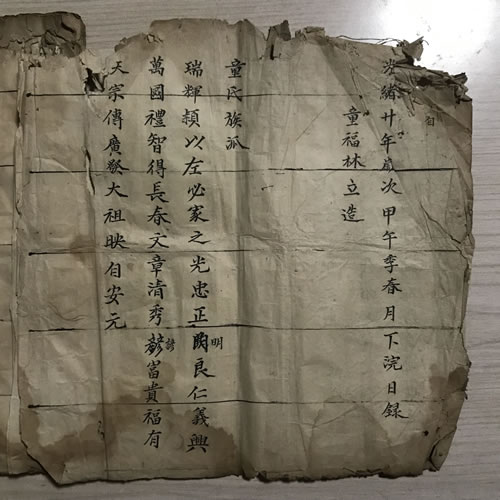 光緒廿年歲次甲午季春月下浣日錄
童福林立造
童氏族派
瑞輝頴以左必家之光忠正良仁義興
明
萬國禮智得長春文章清秀富貴福有
天宗傳廣發大祖映自安元